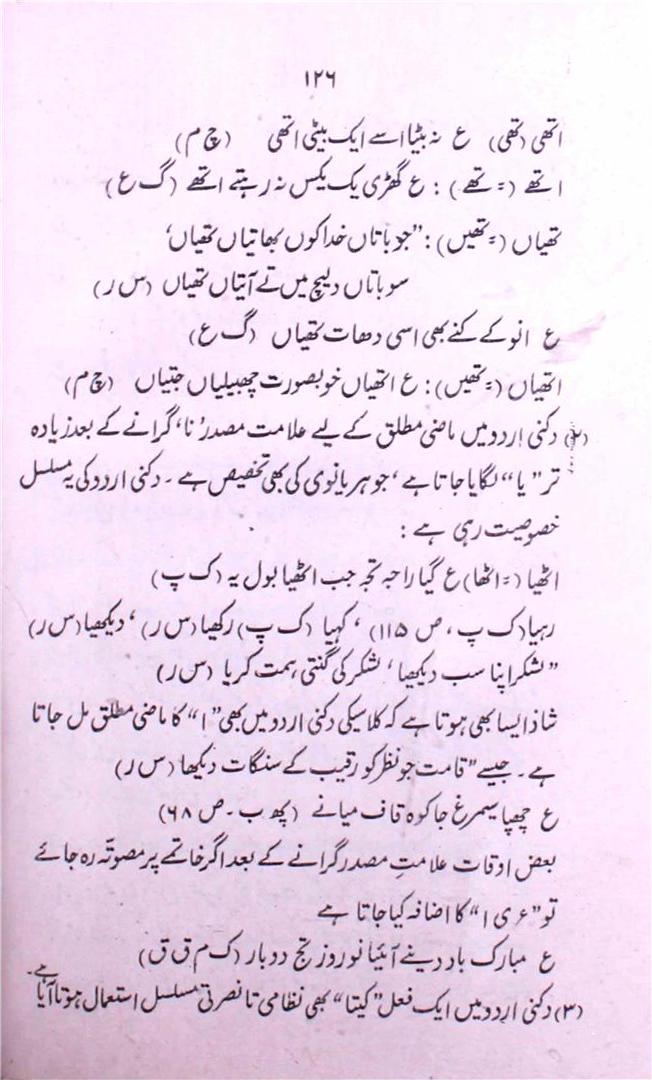 ۱۲۶
اتھی (تھی) ع نہ بیٹا اسے ایک بیٹی اتھی (چ م)
اتھے (= تھے) : ع گھڑی یک یکس نہ رہتے اتھے (گ ع)
تھیاں (= تھیں) : "جو باتاں خدا کوں بھاتیاں تھیاں'
سو باتاں دلیچ میں تے آتیاں تھیاں (س ر)
ع انو کے کنے بھی اسی دھات تھیاں (گ ع)
اتھیاں (= تھیں) : ع اتھیاں خوبصورت چھبیلیاں جتیاں (چ م)
(۲) دکنی اردو میں ماضی مطلق کے لیے علامت مصدر 'نا' گرانے کے بعد زیادہ
تر "یا" لگایا جاتا ہے ' جو ہریانوی کی بھی تخصیص ہے ۔ دکنی اردو کی یہ مسلسل
خصوصیت رہی ہے :
اٹھیا (= اٹھا) ع گیا راجہ تجہ جب اٹھیا بول یہ (ک پ)
رہیا (ک پ ، ص ۱۱۵) ' کہیا (ک پ) رکھیا (س ر) ' دیکھیا (س ر)
"لشکر اپنا سب دیکھیا ' لشکر کی گنتی ہمت کریا (س ر)
شاذ ایسا بھی ہوتا ہے کہ کلاسیکی دکنی اردو میں بھی "ا" کا ماضی مطلق مل جاتا
ہے ۔ جیسے "قامت جو نظر کو رقیب کے سنگات دیکھا (س ر)
ع چھپا سیمرغ جا کوہ قاف میانے (پھ ب ۔ ص ۶۸)
بعض اوقات علامتِ مصدر گرانے کے بعد اگر خاتمے پر مصوتہ رہ جائے
تو "ء ی ا" کا اضافہ کیا جاتا ہے
ع مبارک باد دینے آئیا نوروز تج دربار (ک م ق ق)
(۳) دکنی اردو میں ایک فعل "کیتا" بھی نظامی تا نصرتی مسلسل استعمال ہوتا آیا ہے۔